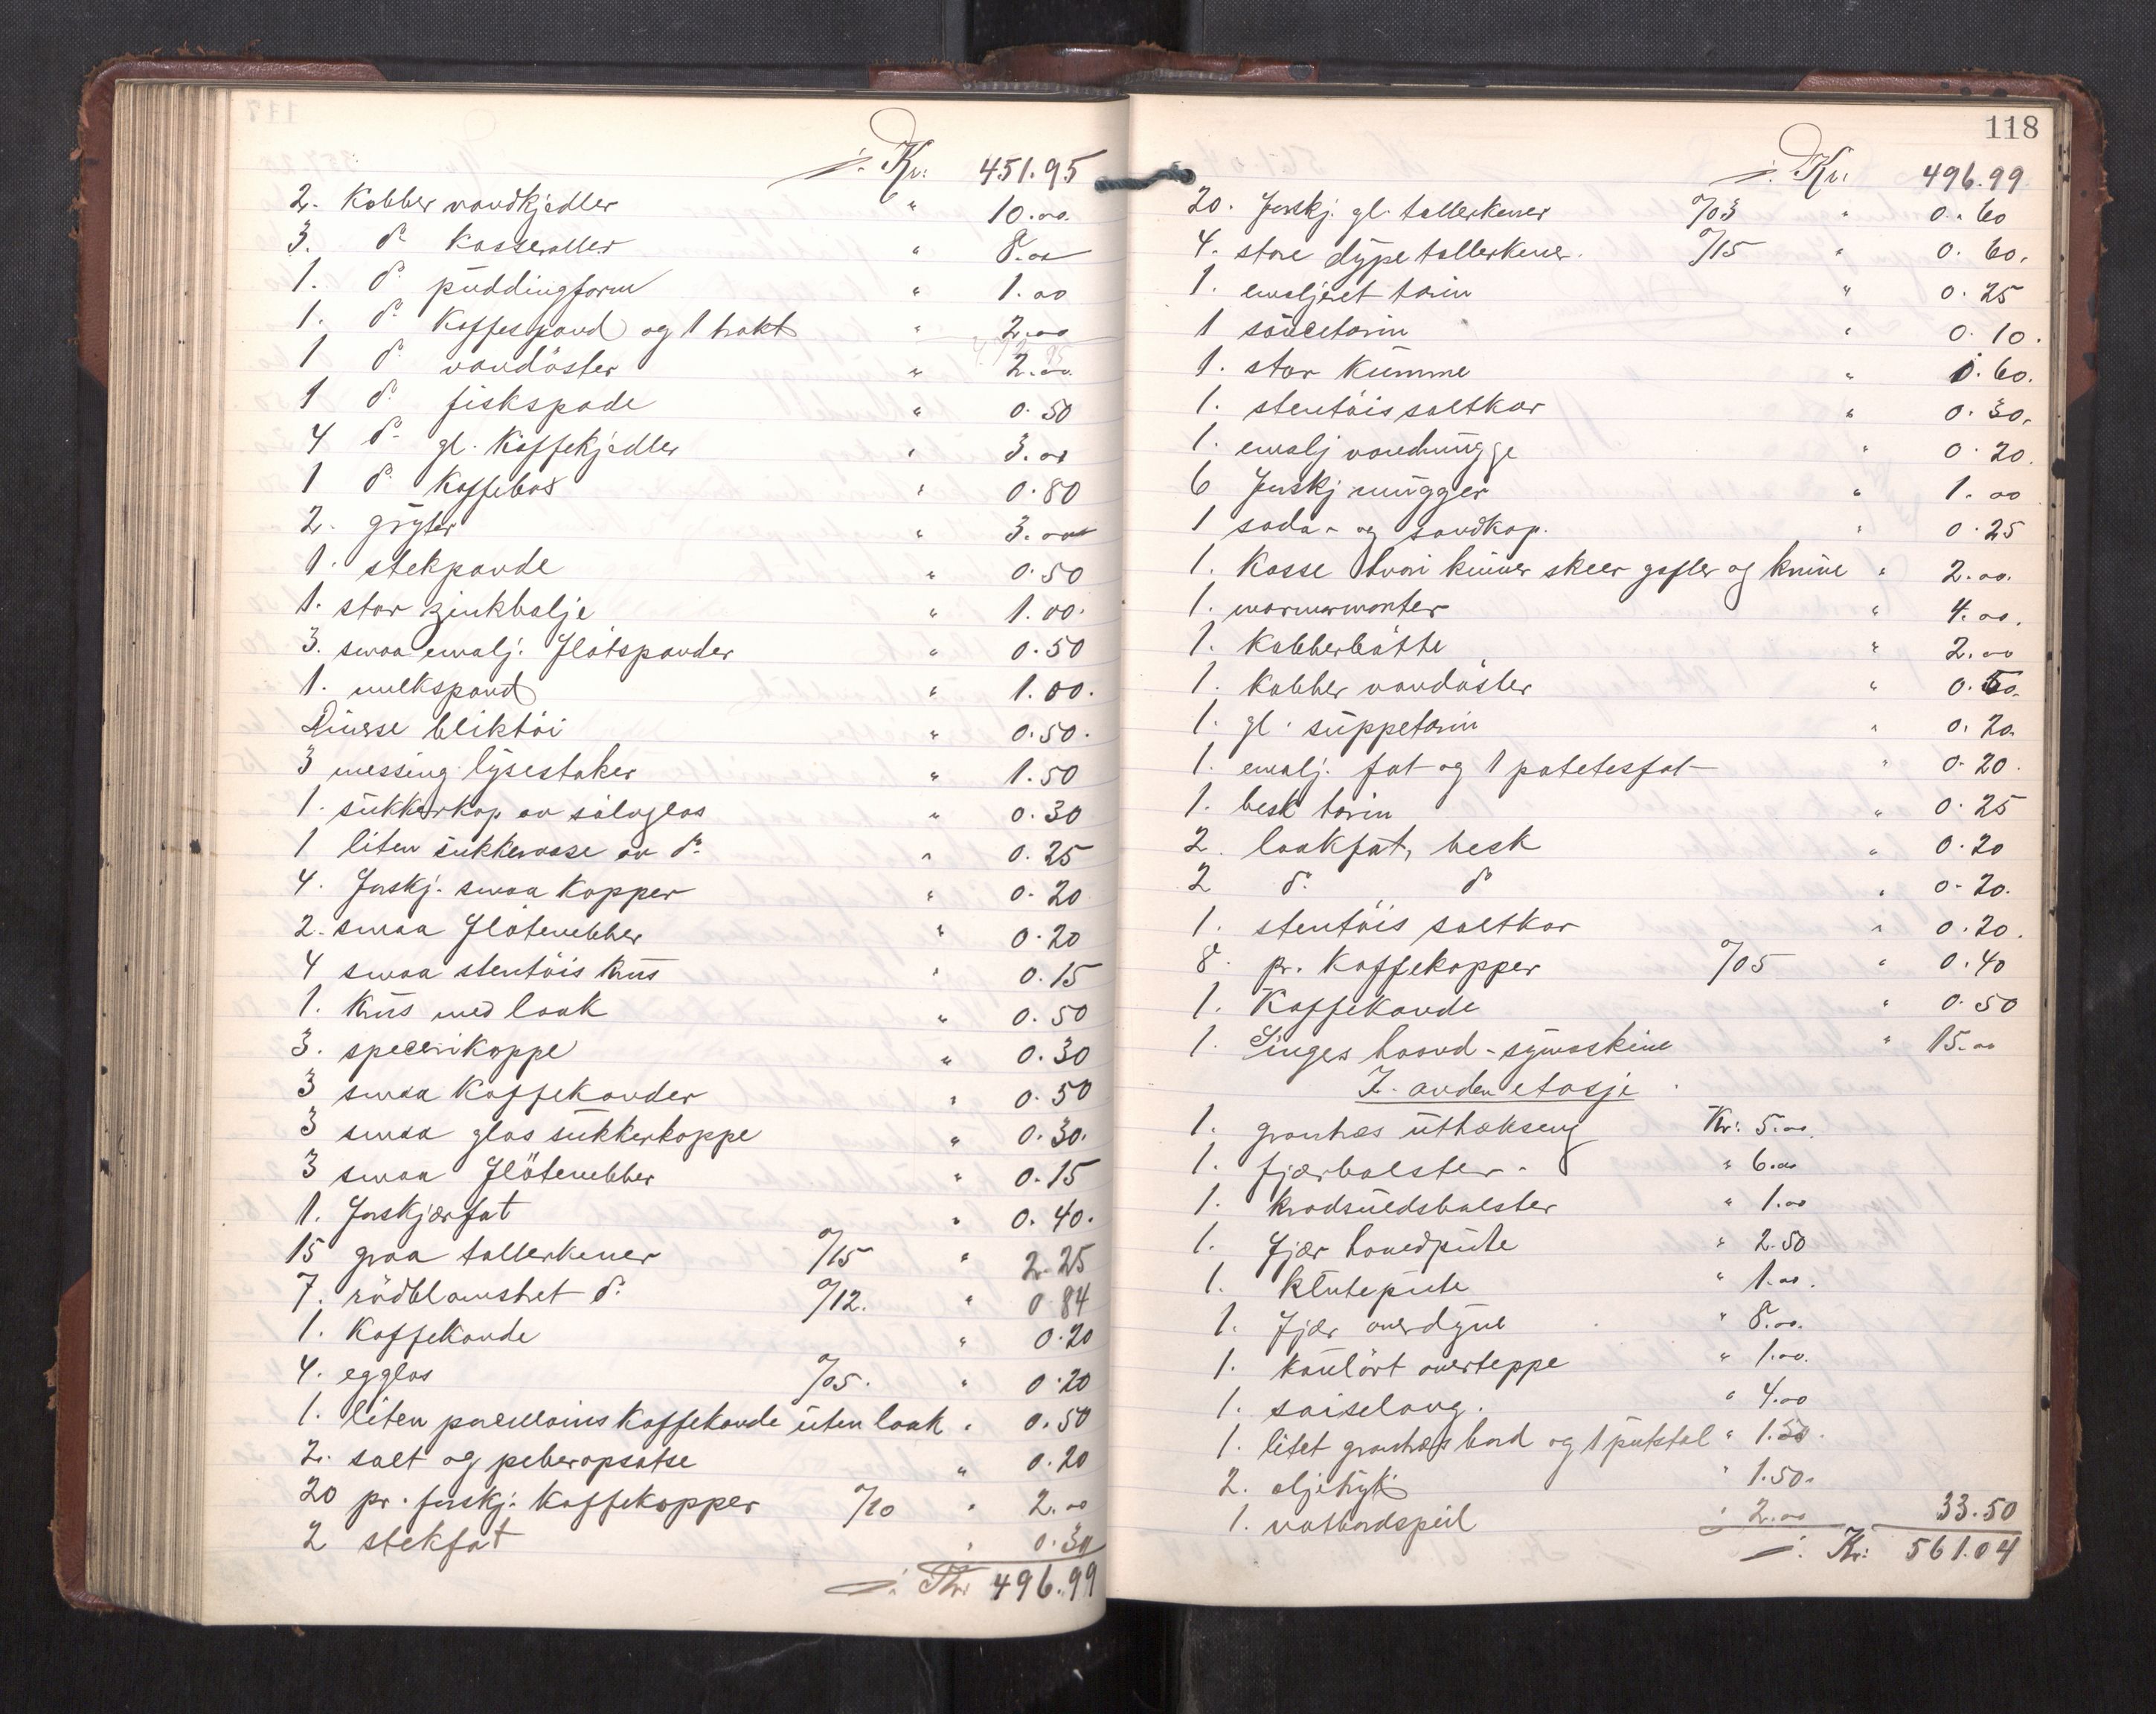 ÷ Kr: 451.95
2. Kobber vandkjedler " 10.00.
3. do. Kasseroller " 8.00
1. do. puddingform " 1.00
1. do. Kaffespand og 1 trakt " 2.00
1 do. vandöster " 2.00
1 do. fiskspade " 0.50
4 do. gl. Kaffekjedler " 3.00
1 do. Kaffebös " 0.80
2. gryter " 3.00
1. stekpande " 0.50
1. stor zinkbalje " 1.00.
3. smaa emalj. Flötspander " 0.50
1. melkspand " 1.00.
Diverse bliktöi " 0.50.
3 messing lysestaker " 1.50
1. sukkerkop av sölvglas " 0.30
1 liten sukkervase av do. " 0.25
4. Forskj. smaa Kopper " 0.20
2. smaa Flötenebber " 0.20
4 smaa stentöis krus " 0.15
1. Krus med laak " 0.50
3. specerikoppe " 0.30
3 smaa Kaffekander " 0.50
3 smaa glas sukkerkoppe " 0.30.
3 smaa Flötenebber " 0.15
1. Forskjærfat " 0.40.
15 graa tallerkener a/15 " 2.25
7. rödblomstret do. a/12. " 0.84
1. Kaffekande " 0.20
4. egglas a/05. " 0.20
1. liten porcellains Kaffekande uten laak " 0.50
2. salt og peberopsatse " 0.20
20 pr. forskj. Kaffekopper a/10 " 2.00
2 stekfat " 0.30
÷ Kr: 496.99
118
÷ Kr: 496.99
20. Forskj. gl. tallerkener a/03 " 0.60
4. store dype tallerkener. a/15 " 0.60.
1. emaljeret terin " 0.25
1 saucetorin " 0.10.
1. stor Kumme " 0.60.
1. stentöis saltkar " 0.30.
1. emalj vandmugge " 0.20.
6 Forskj mugger " 1.00
1 soda- og sandkop. " 0.25
1. Kasse hvori kniver skeer gafler og knive " 2.00.
1. marmormorter " 4.00.
1. Kobberbötte " 2.00
1. Kobber vandöster " 0.50.
1. gl. suppetorin " 0.20.
1. emalj. fat og 1 potetesfat " 0.20.
1. besk torin " 0.25
2. laakfat, besk " 0.20
2 do. do " 0.20.
1. stentöis saltkar " 0.20.
8. pr. Kaffekopper a/05 " 0.40
1. Kaffekande " 0.50
1. Singes haand-symaskine " 15.00
I anden etasje
1. granhæs uttrækseng Kr: 5.00.
1. fjærbolster. " 6.00
1. krodsuldsbolster " 1.00
1. Fjær hovedpute " 2.50
1. klutepute " 1.00.
1. Fjær overdyne " 8.00.
1. kaulört overteppe " 1.00.
1. saiselong. " 4.00
1. litet granhæs bord og 1 putstol " 1.50.
2. oljetryk " 1.50.
1. vatbordspeil " 2.00 33.50
÷ Kr: 561.04